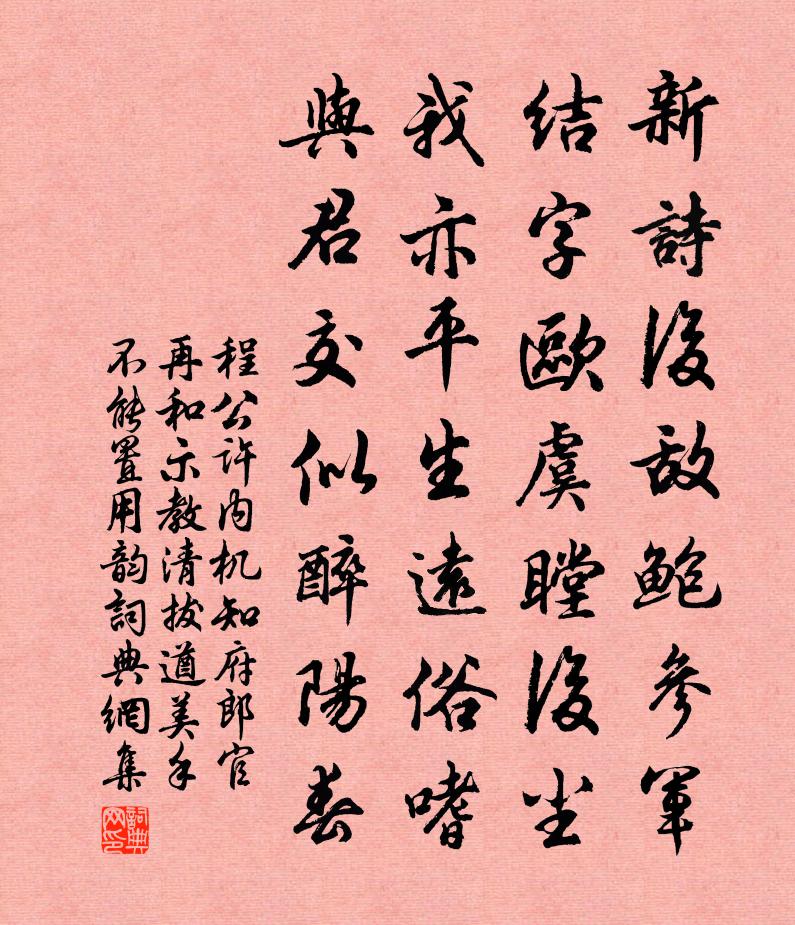 新詩後敵鮑參軍
結字歐虞瞠後尘
我亦平生遠俗嗜
與君交似醉陽春
程公許内机知府郎官
再和示教清拔遒美手
不能置用韵詞典網集
詞典网印